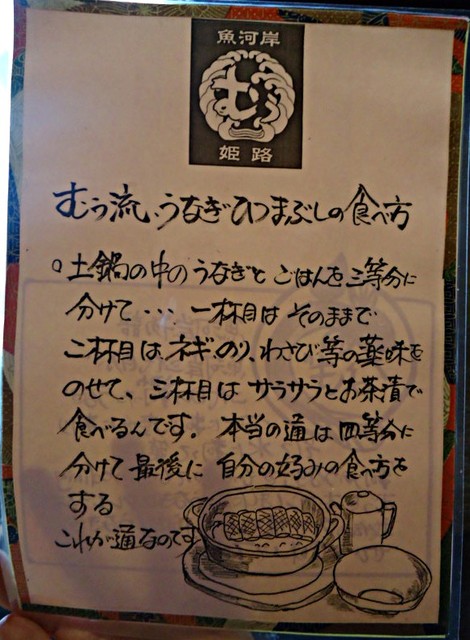 魚河岸
むう
姫路
むう流、うなぎひつまぶしの食べ方
○土鍋の中のうなぎと ごはんを三等分に
分けて・・・ 一杯目は そのままで
二杯目は、ネギ、のり、わさび等の薬味を
のせて、三杯目は サラサラとお茶漬で
食べるんです。 本当の通は四等分に
分けて最後に 自分の好みの食べ方を
する
これが通なのです